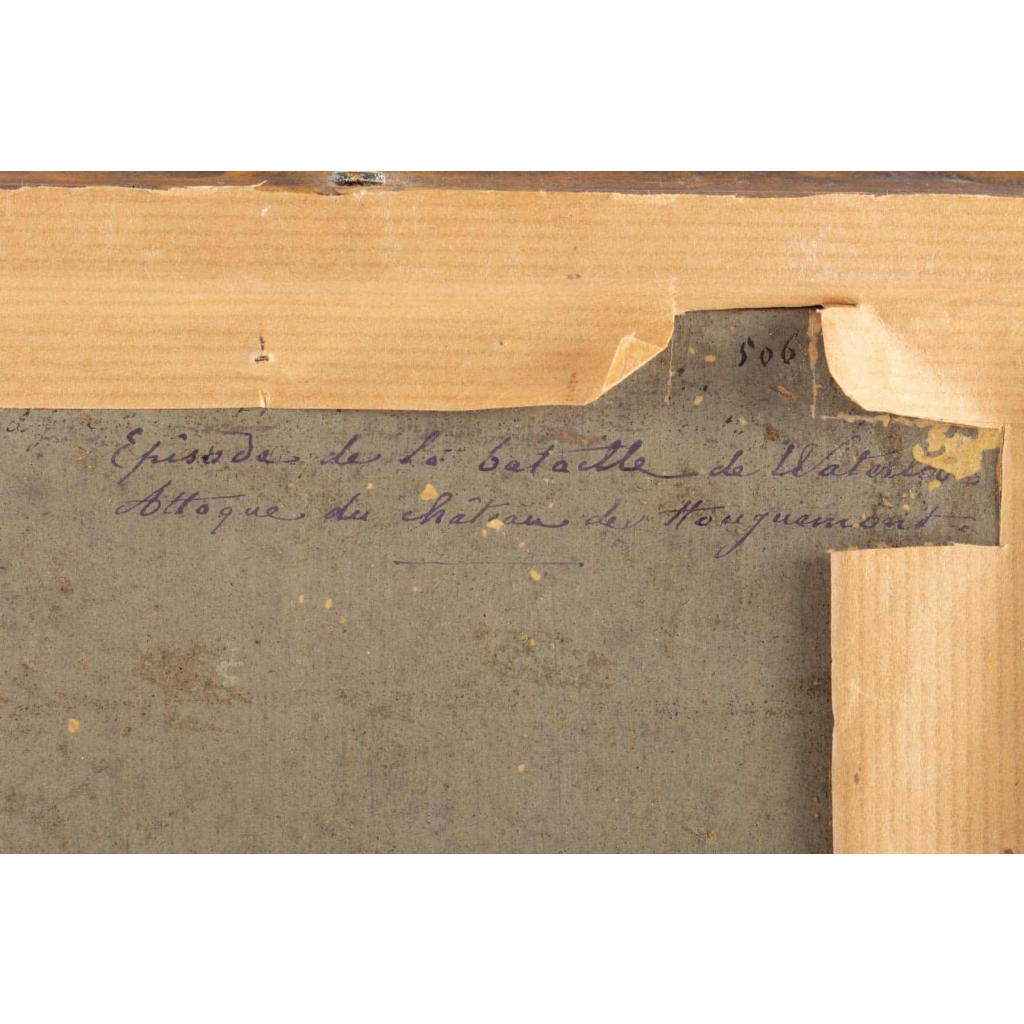 506
Episode de la bataille de Waterloo
Attaque du château de Houguemont.